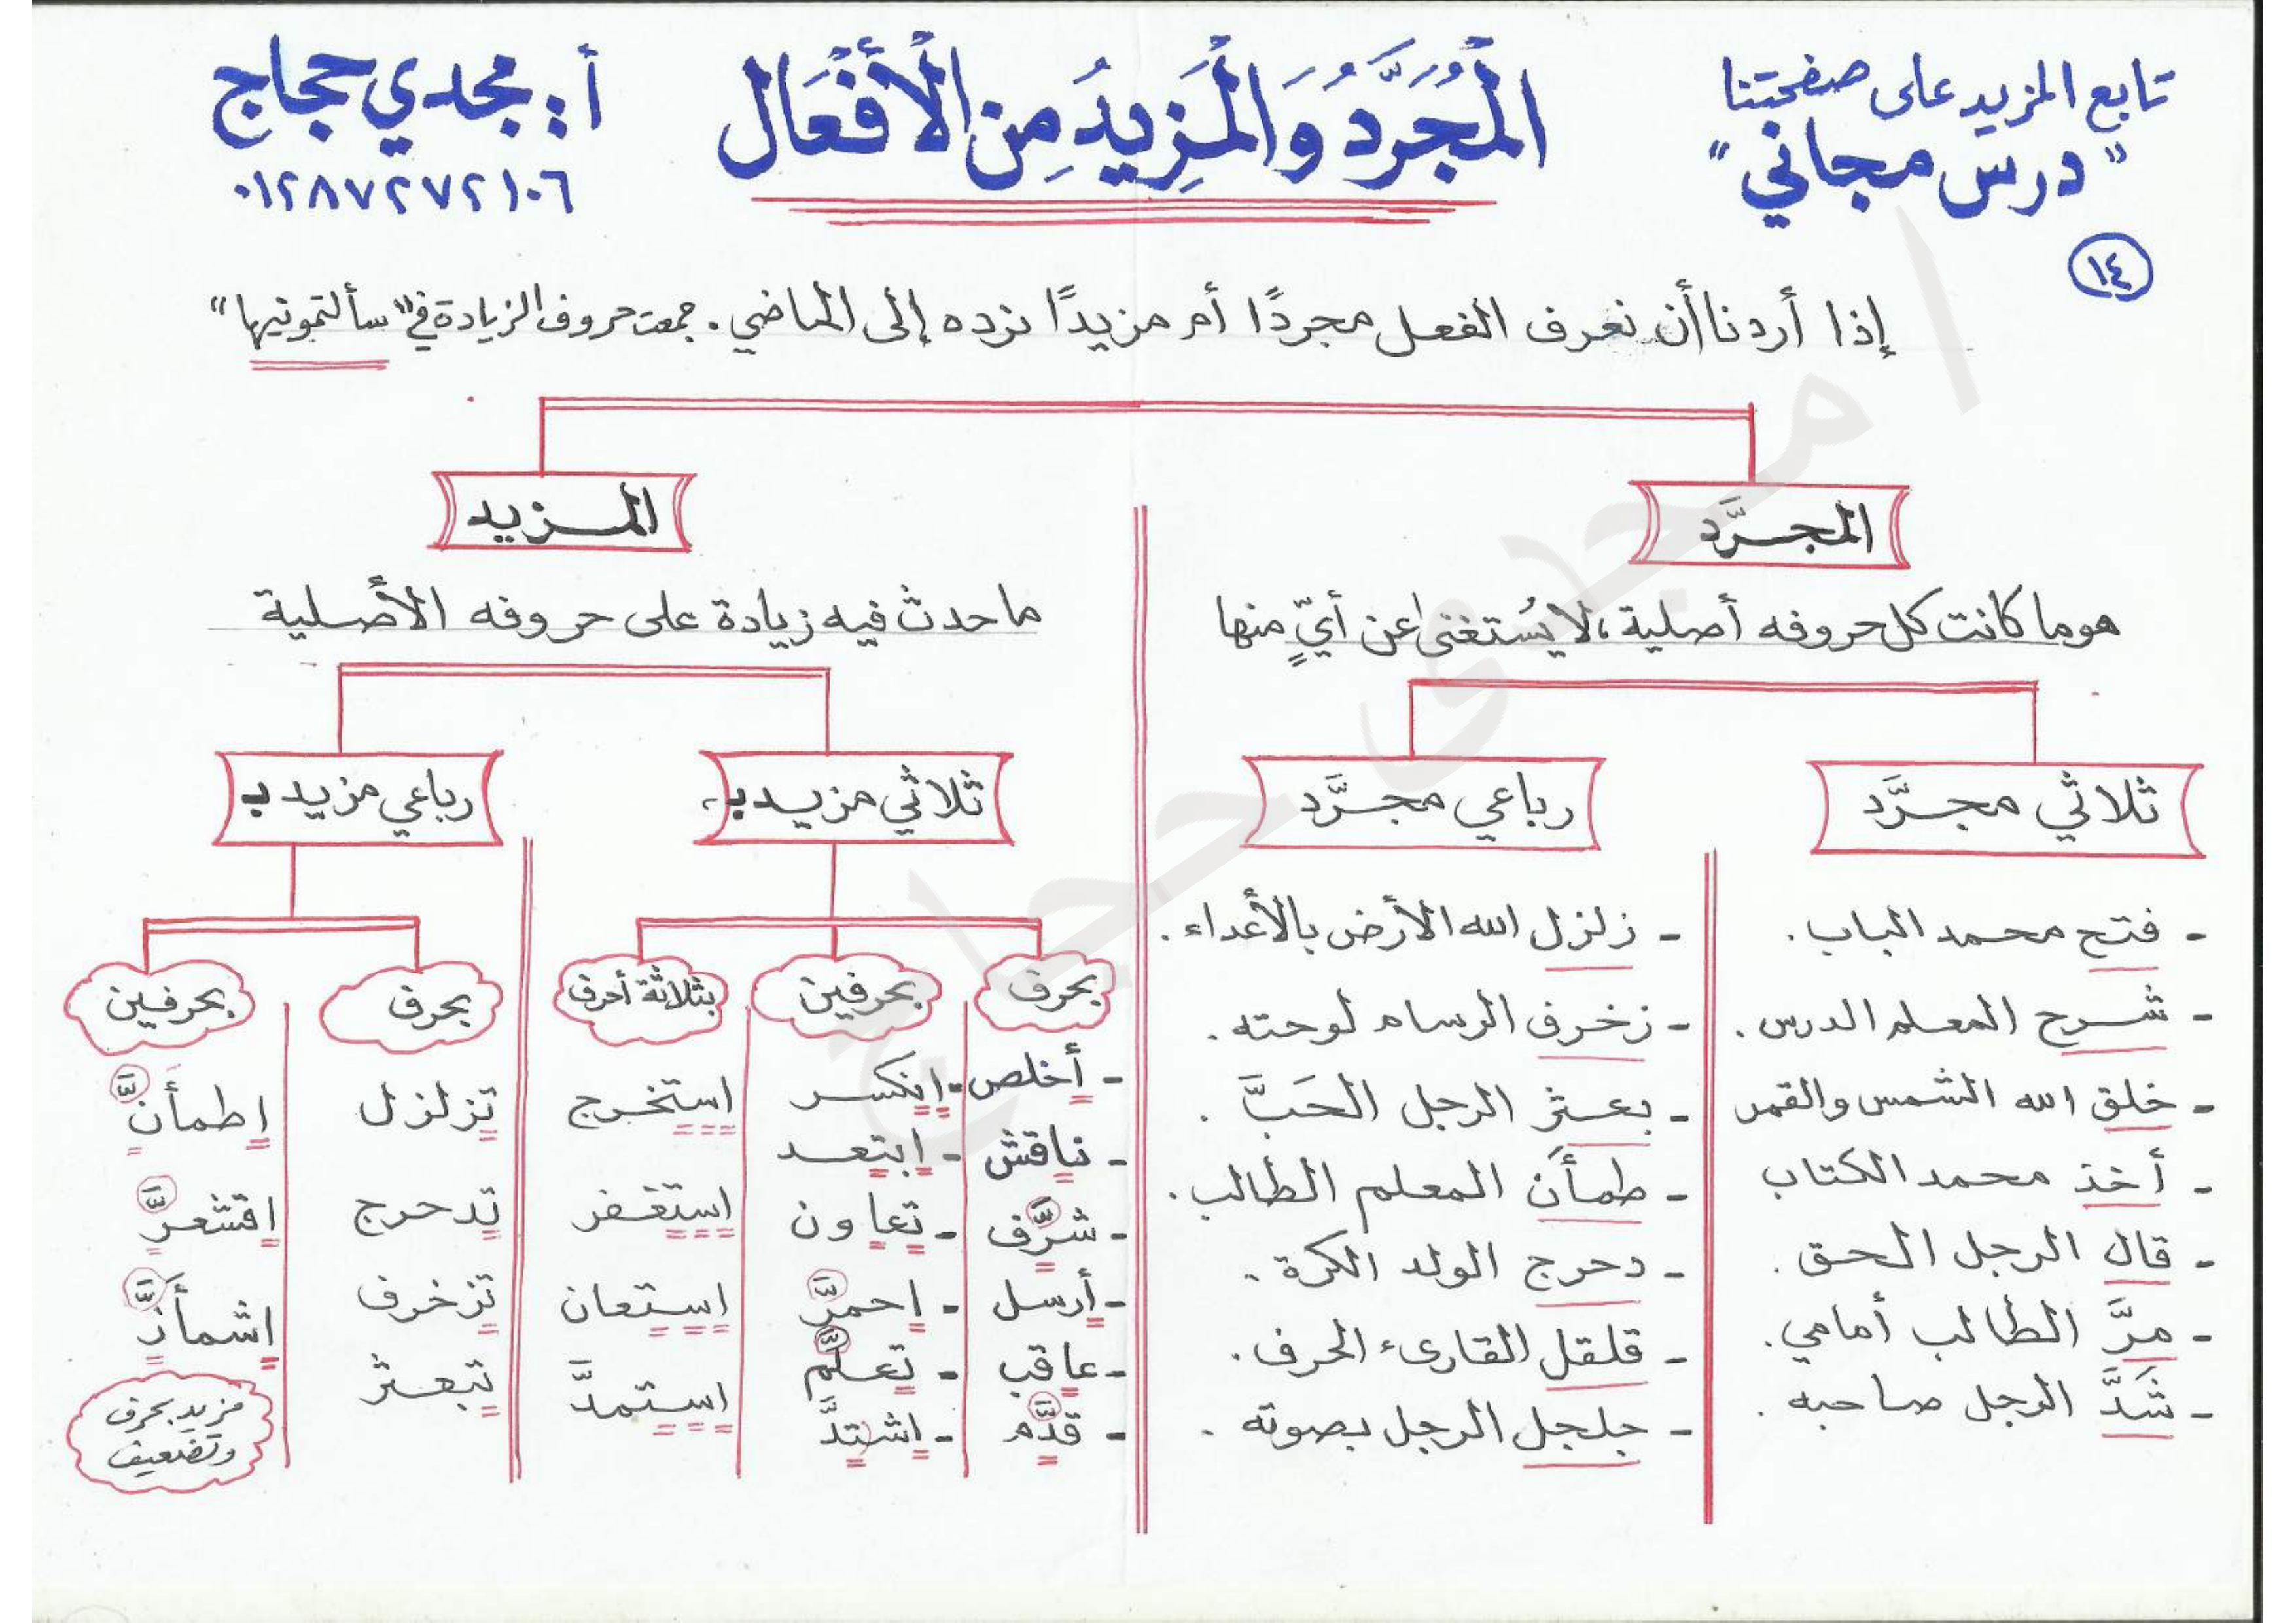 تابع المزيد على صفحتنا
"درس مجاني"
المُجَرَّدُ وَالْمَزِيدُ مِنَ الْأَفْعَال
أ: مجدي حجاج
٠١٢٨٧٢٧٢١٠٦
١٤
إذا أردنا أن نعرف الفعل مجردًا أم مزيدًا نرده إلى الماضي . جمعت حروف الزيادة في "سألتمونيها"
المجرَّد
هو ما كانت كل حروفه أصلية ، لا يُستغنى عن أيٍّ منها
ثلاثي مجرَّد
- فتح محمد الباب .
- شرح المعلم الدرس .
- خلق الله الشمس والقمر
- أخذ محمد الكتاب
- قال الرجل الحق .
- مرَّ الطالب أمامي .
- شَدَّ الرجل صاحبه .
رباعي مجرَّد
- زلزل الله الأرض بالأعداء .
- زخرف الرسام لوحته .
- بعثر الرجل الحَبَّ .
- طمأن المعلم الطالب .
- دحرج الولد الكرة .
- قلقل القارىء الحرف .
- جلجل الرجل بصوته .
المزيد
ما حدث فيه زيادة على حروفه الأصلية
ثلاثي مزيد بـ
بحرف
- أخلص
- ناقش
- شرَّف
- أرسل
- عاقب
- قدَّم
بحرفين
- انكسر
- ابتعد
- تعاون
- احمرَّ
- تعلَّم
- اشتدَّ
بثلاثة أحرف
استخرج
استغفر
استعان
استمدَّ
رباعي مزيد بـ
بحرف
تزلزل
تدحرج
تزخرف
تبعثر
بحرفين
اطمأنَّ
اقشعرَّ
اشمأزَّ
مزيد بحرف
وتضعيف
امجدى حجاج